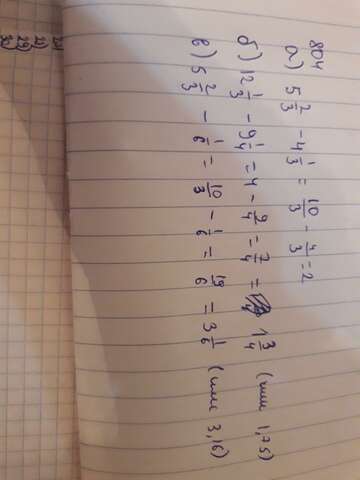 804
а) 5 2/3 - 4 1/3 = 10/3 - 4/3 = 2
б) 12 1/3 - 9 1/4 = 4 - 9/4 = 7/4 = 1 3/4 (или 1,75)
в) 5 2/3 - 1/6 = 10/3 - 1/6 = 19/6 = 3 1/6 (или 3,16)